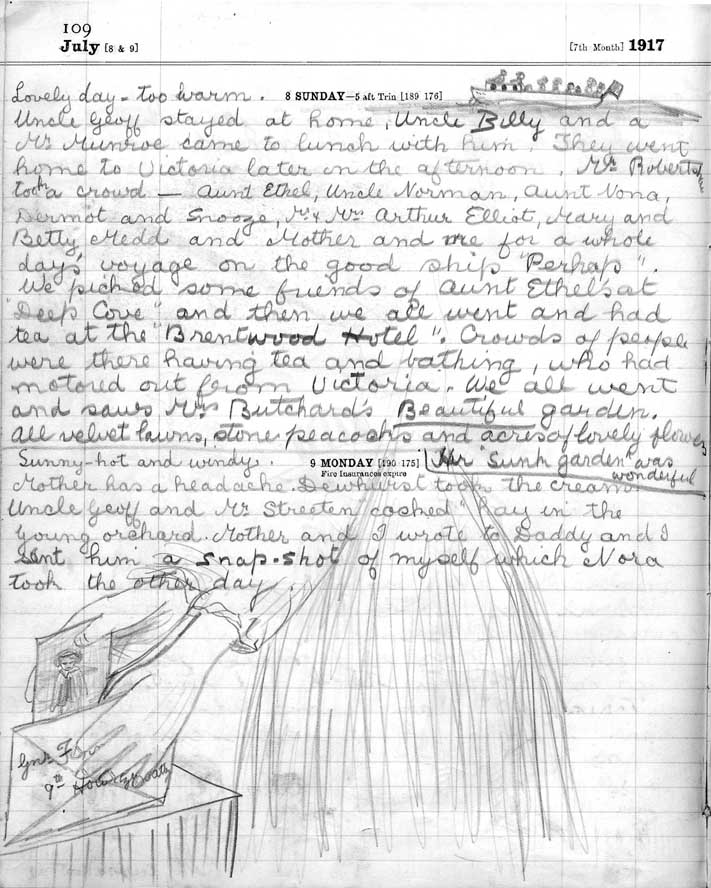 109
July [8 & 9] [7th Month] 1917
Lovely day - too warm. 8 SUNDAY—5 aft Trin [189 176]
Uncle Geoff stayed at home, Uncle Billy and a
Mr Munroe came to lunch with him. They went
home to Victoria later in the afternoon. Mr Roberts
took a crowd — Aunt Ethel, Uncle Norman, Aunt Nona,
Dermot and Snooze, Mr & Mrs Arthur Elliot, Mary and
Betty, Medd and Mother and me for a whole
days' voyage on the good ship "Perhaps".
We picked some friends of Aunt Ethel's at
"Deep Cove" and then we all went and had
tea at the "Brentwood Hotel". Crowds of people
were there having tea and bathing, who had
motored out from Victoria. We all went
and saw Mrs Butchard's Beautiful garden.
All velvet lawns, stone peacocks and acres of lovely flowers
Her "sunk garden" was
wonderful
Sunny-hot and windy. 9 MONDAY [190 175]
Fire Insurances expire
Mother has a headache. Dewhurst took the cream.
Uncle Geoff and Mr Streeten "coshed" hay in the
young orchard. Mother and I wrote to Daddy and I
sent him a snap-shot of myself which Nora
took the other day.
Gnr.
9th